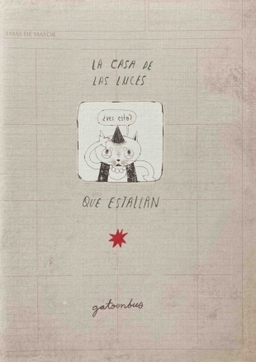 LA CASA DE
LAS LUCES
¿ves esto?
QUE ESTALLAN
gatombus